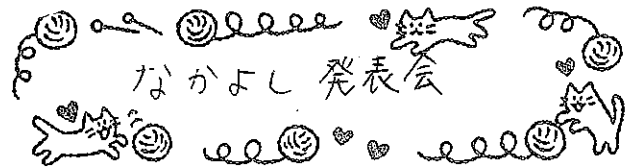 なかよし発表会